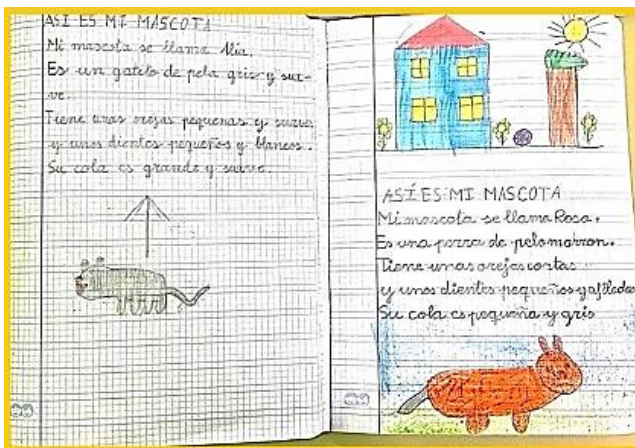 ASI ES MI MASCOTA
Mi mascota se llama Mia.
Es un gatito de pelo gris y sua-
ve.
Tiene unas orejas pequeñas y suaves
y unos dientes pequeños y blancos.
Su cola es grande y suave.
ASÍ ES MI MASCOTA
Mi mascota se llama Rosa.
Es una perra de pelo marron.
Tiene unas orejas cortas
y unos dientes pequeños y afilados
Su cola es pequeña y gris